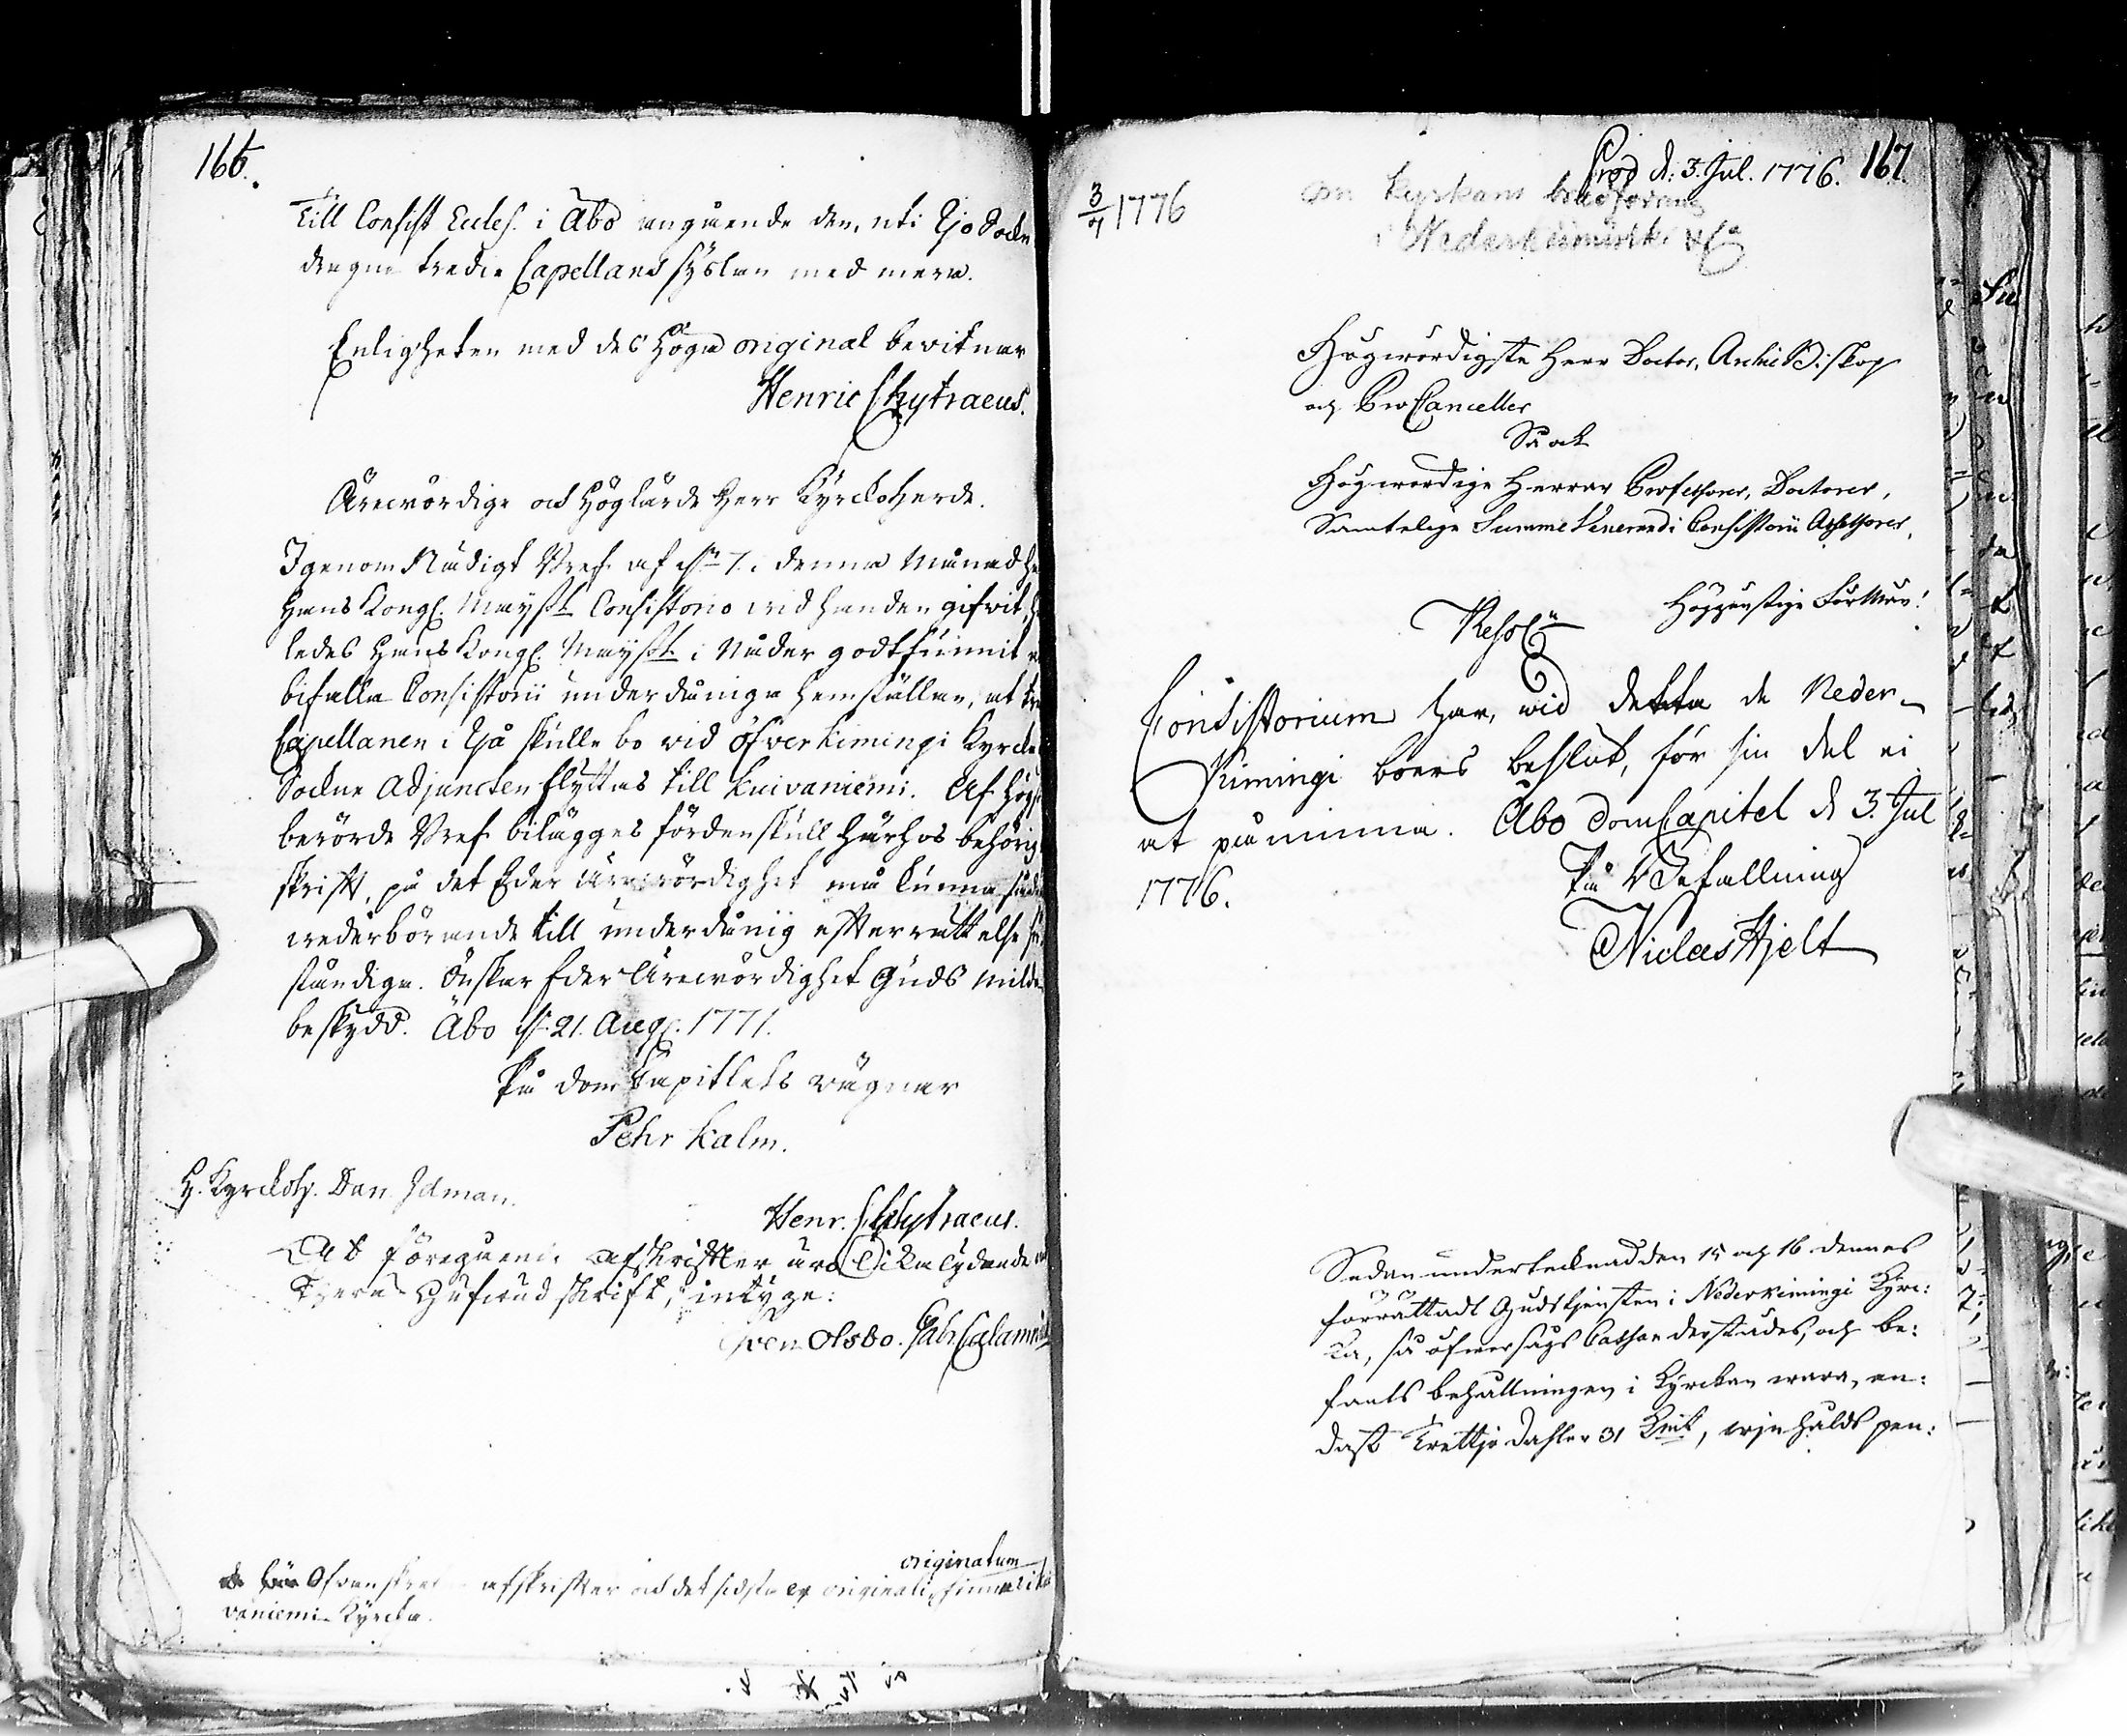 166.
Till Consist Eccles. i Åbo angående den, uti Ijo Sockn
dragne tredie Capellans syslan med mera.
Enligheten med des höga original bevitnar
Henric Chytraeus.
Ärevördige och Höglärde Herr Kyrckoherde.
Igenom Nådigt Bref af d. 7. denna Månad
Hans Kongl. Mayst:t Consistorio vid handen gifvit,
ledes Hans Kongl. Mayst:t i Nåder godtfunnit
bifalla Consistorii underdåniga hemställan, at
Capellanen i Ijå skulle bo vid öfverkimingi Kyrcka
Sockne Adjuncten flyttas till Kuivaniemi. Af Hög
berörde Bref bilägges fördenskull härhos behörig
skrifft, på det Eder ärevördighet må kunna
vederbörande till underdånig efterrättelse
ständiga. Önskar Eder Ärevördighet Guds Milda
beskydd. Åbo d. 21. Aug. 1771.
På Dom Capitlets vägnar
Pehr Kalm.
H. Kyrckoh. Dan. Idman.
Henr. Chytraeus.
At föregående afskrifter äro lika lydande
Theras Hufvud skrift, intyga:
Sven Olsbo. Gabr Calamnius
originatum
Ofvanskref afskrifter och det sidsta ex originali finnas i Kui
vaniemi Kyrcka.
3/7 1776
Prod d: 3. Jul. 1776. 167.
om kyrkans
i Nederkiminki
Högwördigste Herr Doctor, Archie Biskop
och Pro Canceller
Så ock
Högwördige Herrar Professorer, Doctorer,
Samtelige Summe Venerandi Consistorii Assessorer,
Höggunstige Förmän!
Resol:n
Consistorium har, wid detta de Neder-
Kimingi boers beslut, för sin del ei
at påminna. Åbo DomCapitel d 3. Jul
1776.
På Befallning
Niclas Hjelt
Sedan undertecknad den 15 och 16 dennes
förrättadt Gudstjensten i Nederkimingi Kyrc:
ka, så öfwersågs Cassan derstädes, och be:
fants behållningen i Kyrckan wara, en:
dast Trettjo Dahler 31 Kmt, winhålds pen: